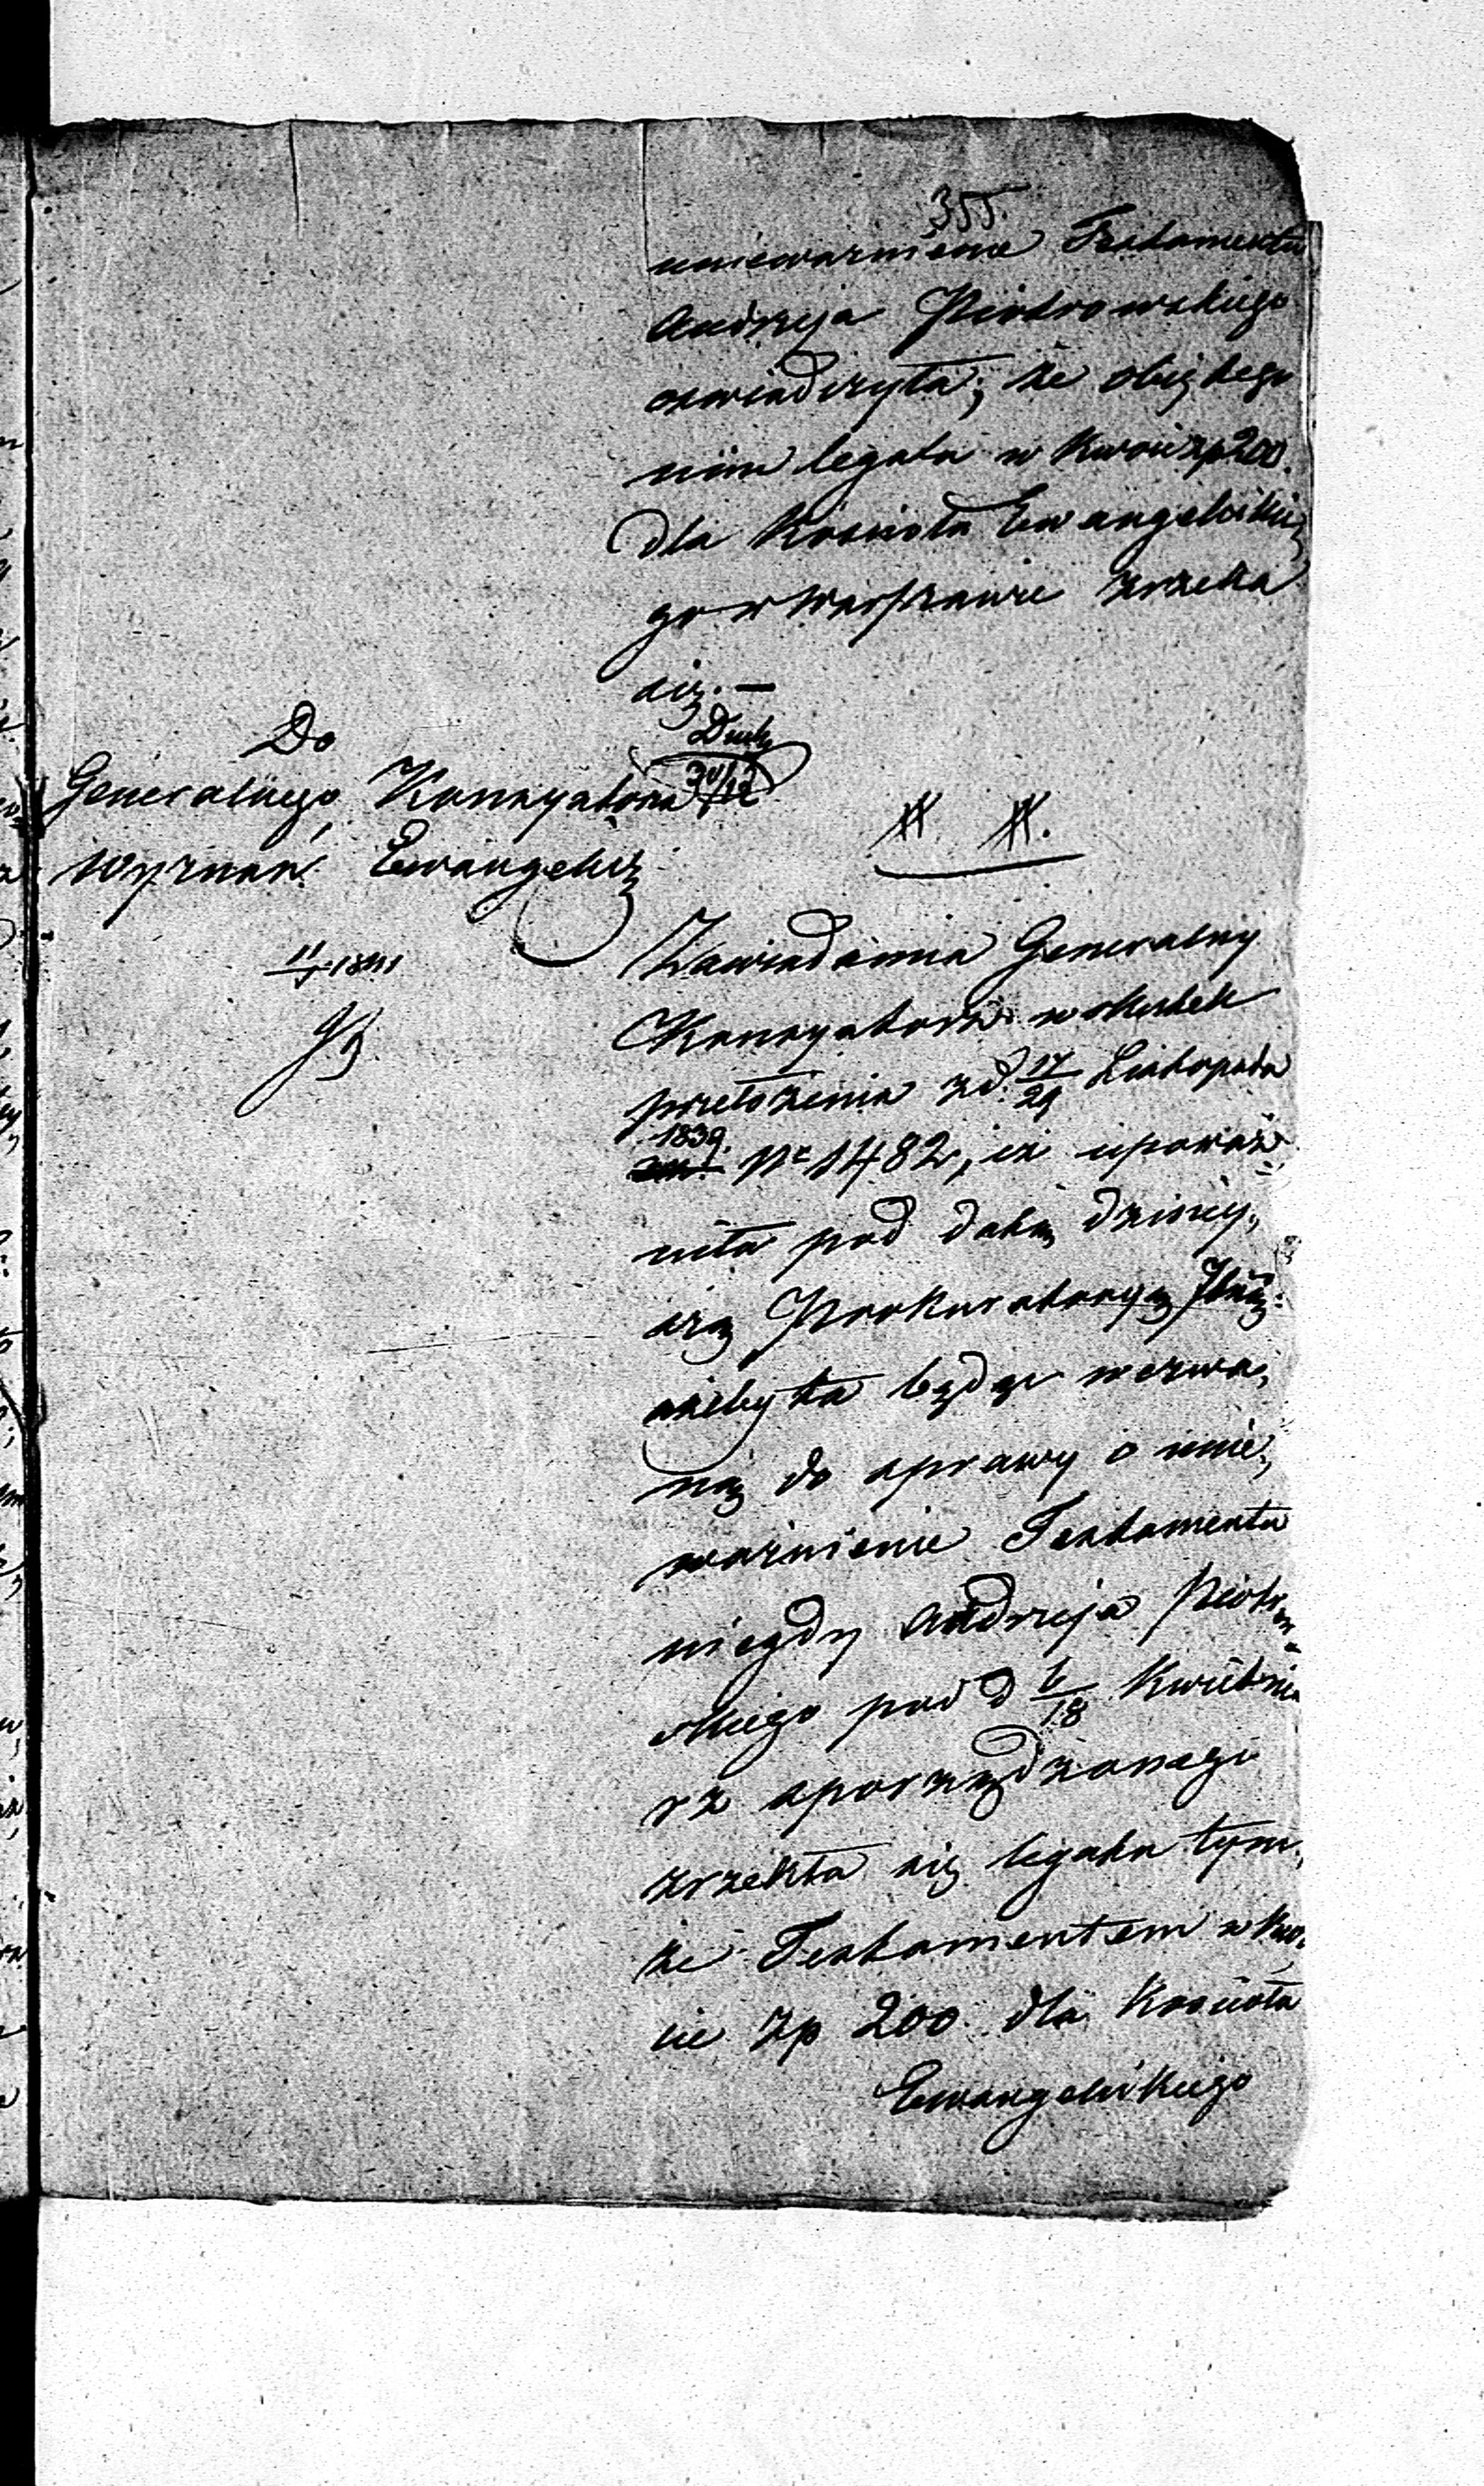 355.
unieważnienie Testamentu
Andrzeja Piotrowskiego
oświadczyła, że objętego
nim legatu w kwocie zp 200.
dla Kościoła Ewangelickie,
go w Warszawie zrzeka
się. —
Do
Generalnego Konsystorza
Wyznań Ewangelick:
30/12
11/1 1841
Zawiadamia Generalny
Konsystorz w skutek
przełożenia z d. 17/29 Listopada
1839. Nr 1482, iż upoważ,
niła pod datą dzisiej,
szą Prokuratoryą
ażeby ta będąc wezwa,
ną do sprawy o unie,
ważnienie Testamentu
niegdy Andrzeja Piotrow,
skiego pod d 6/18 Kwietnia
rz sporządzonego
zrzekła się legatu tym,
że Testamentem w kwo,
cie zp 200 dla Kościoła
Ewangelickiego